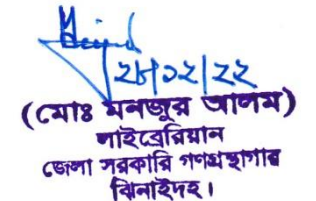 ২৮/০২/২২
(মোঃ মনজুর আলম)
লাইব্রেরিয়ান
জেলা সরকারি গণগ্রন্থাগার
ঝিনাইদহ।